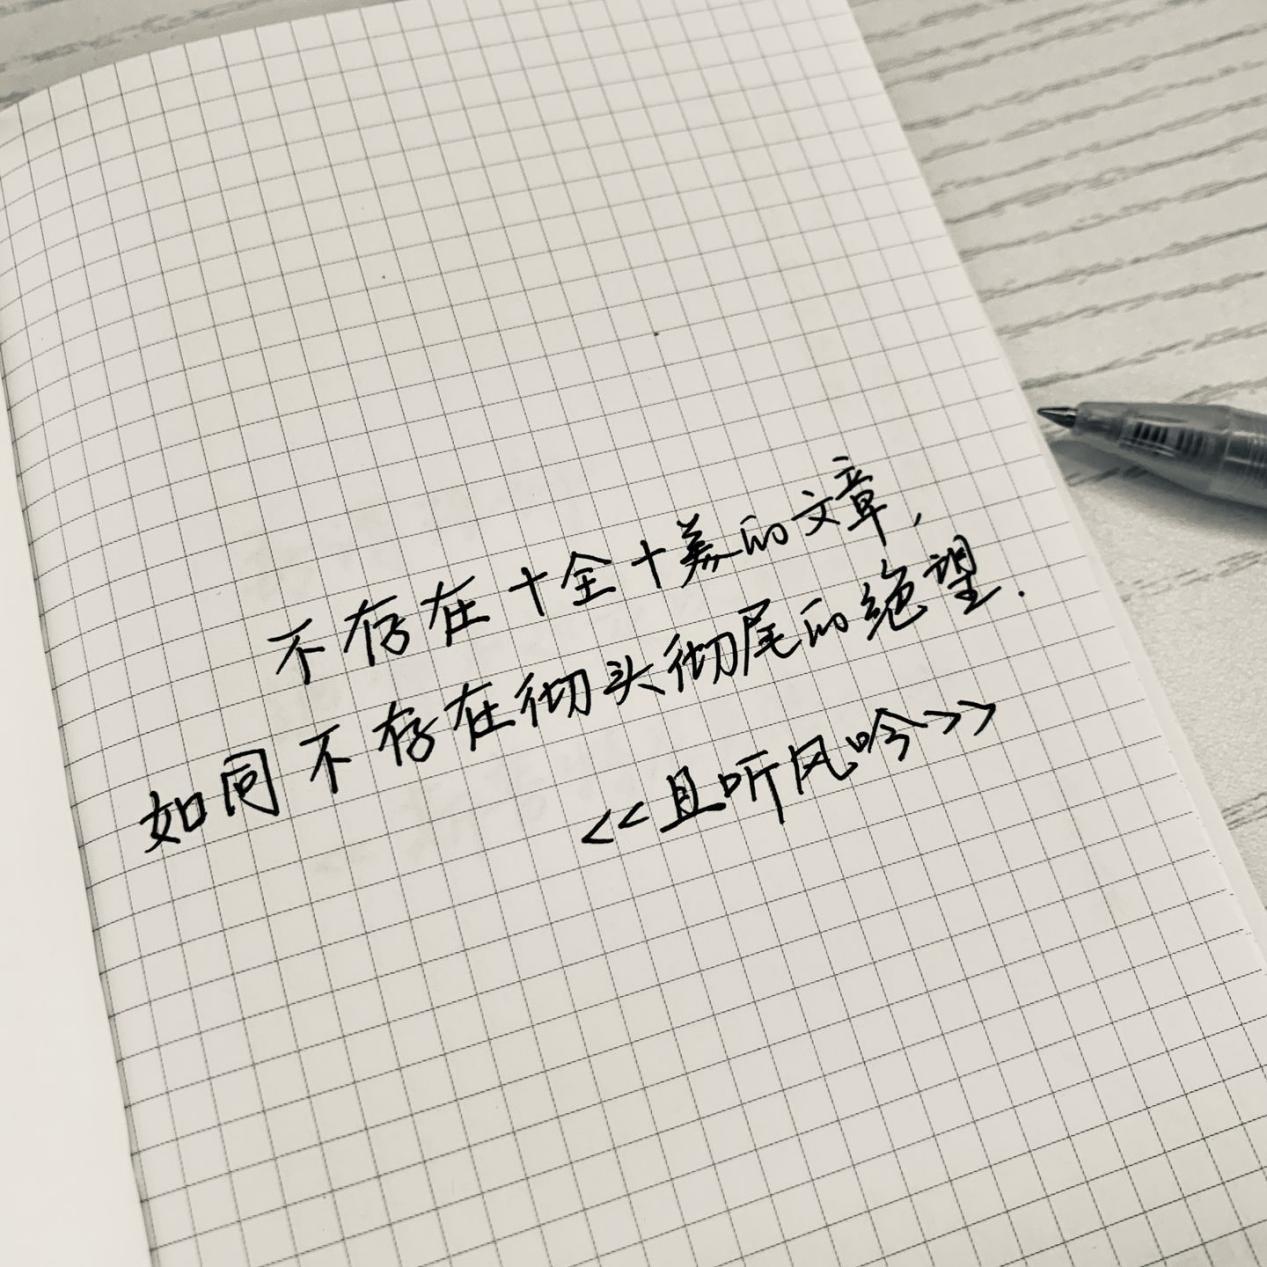 不存在十全十美的文章,
如同不存在彻头彻尾的绝望.
<<且听风吟>>